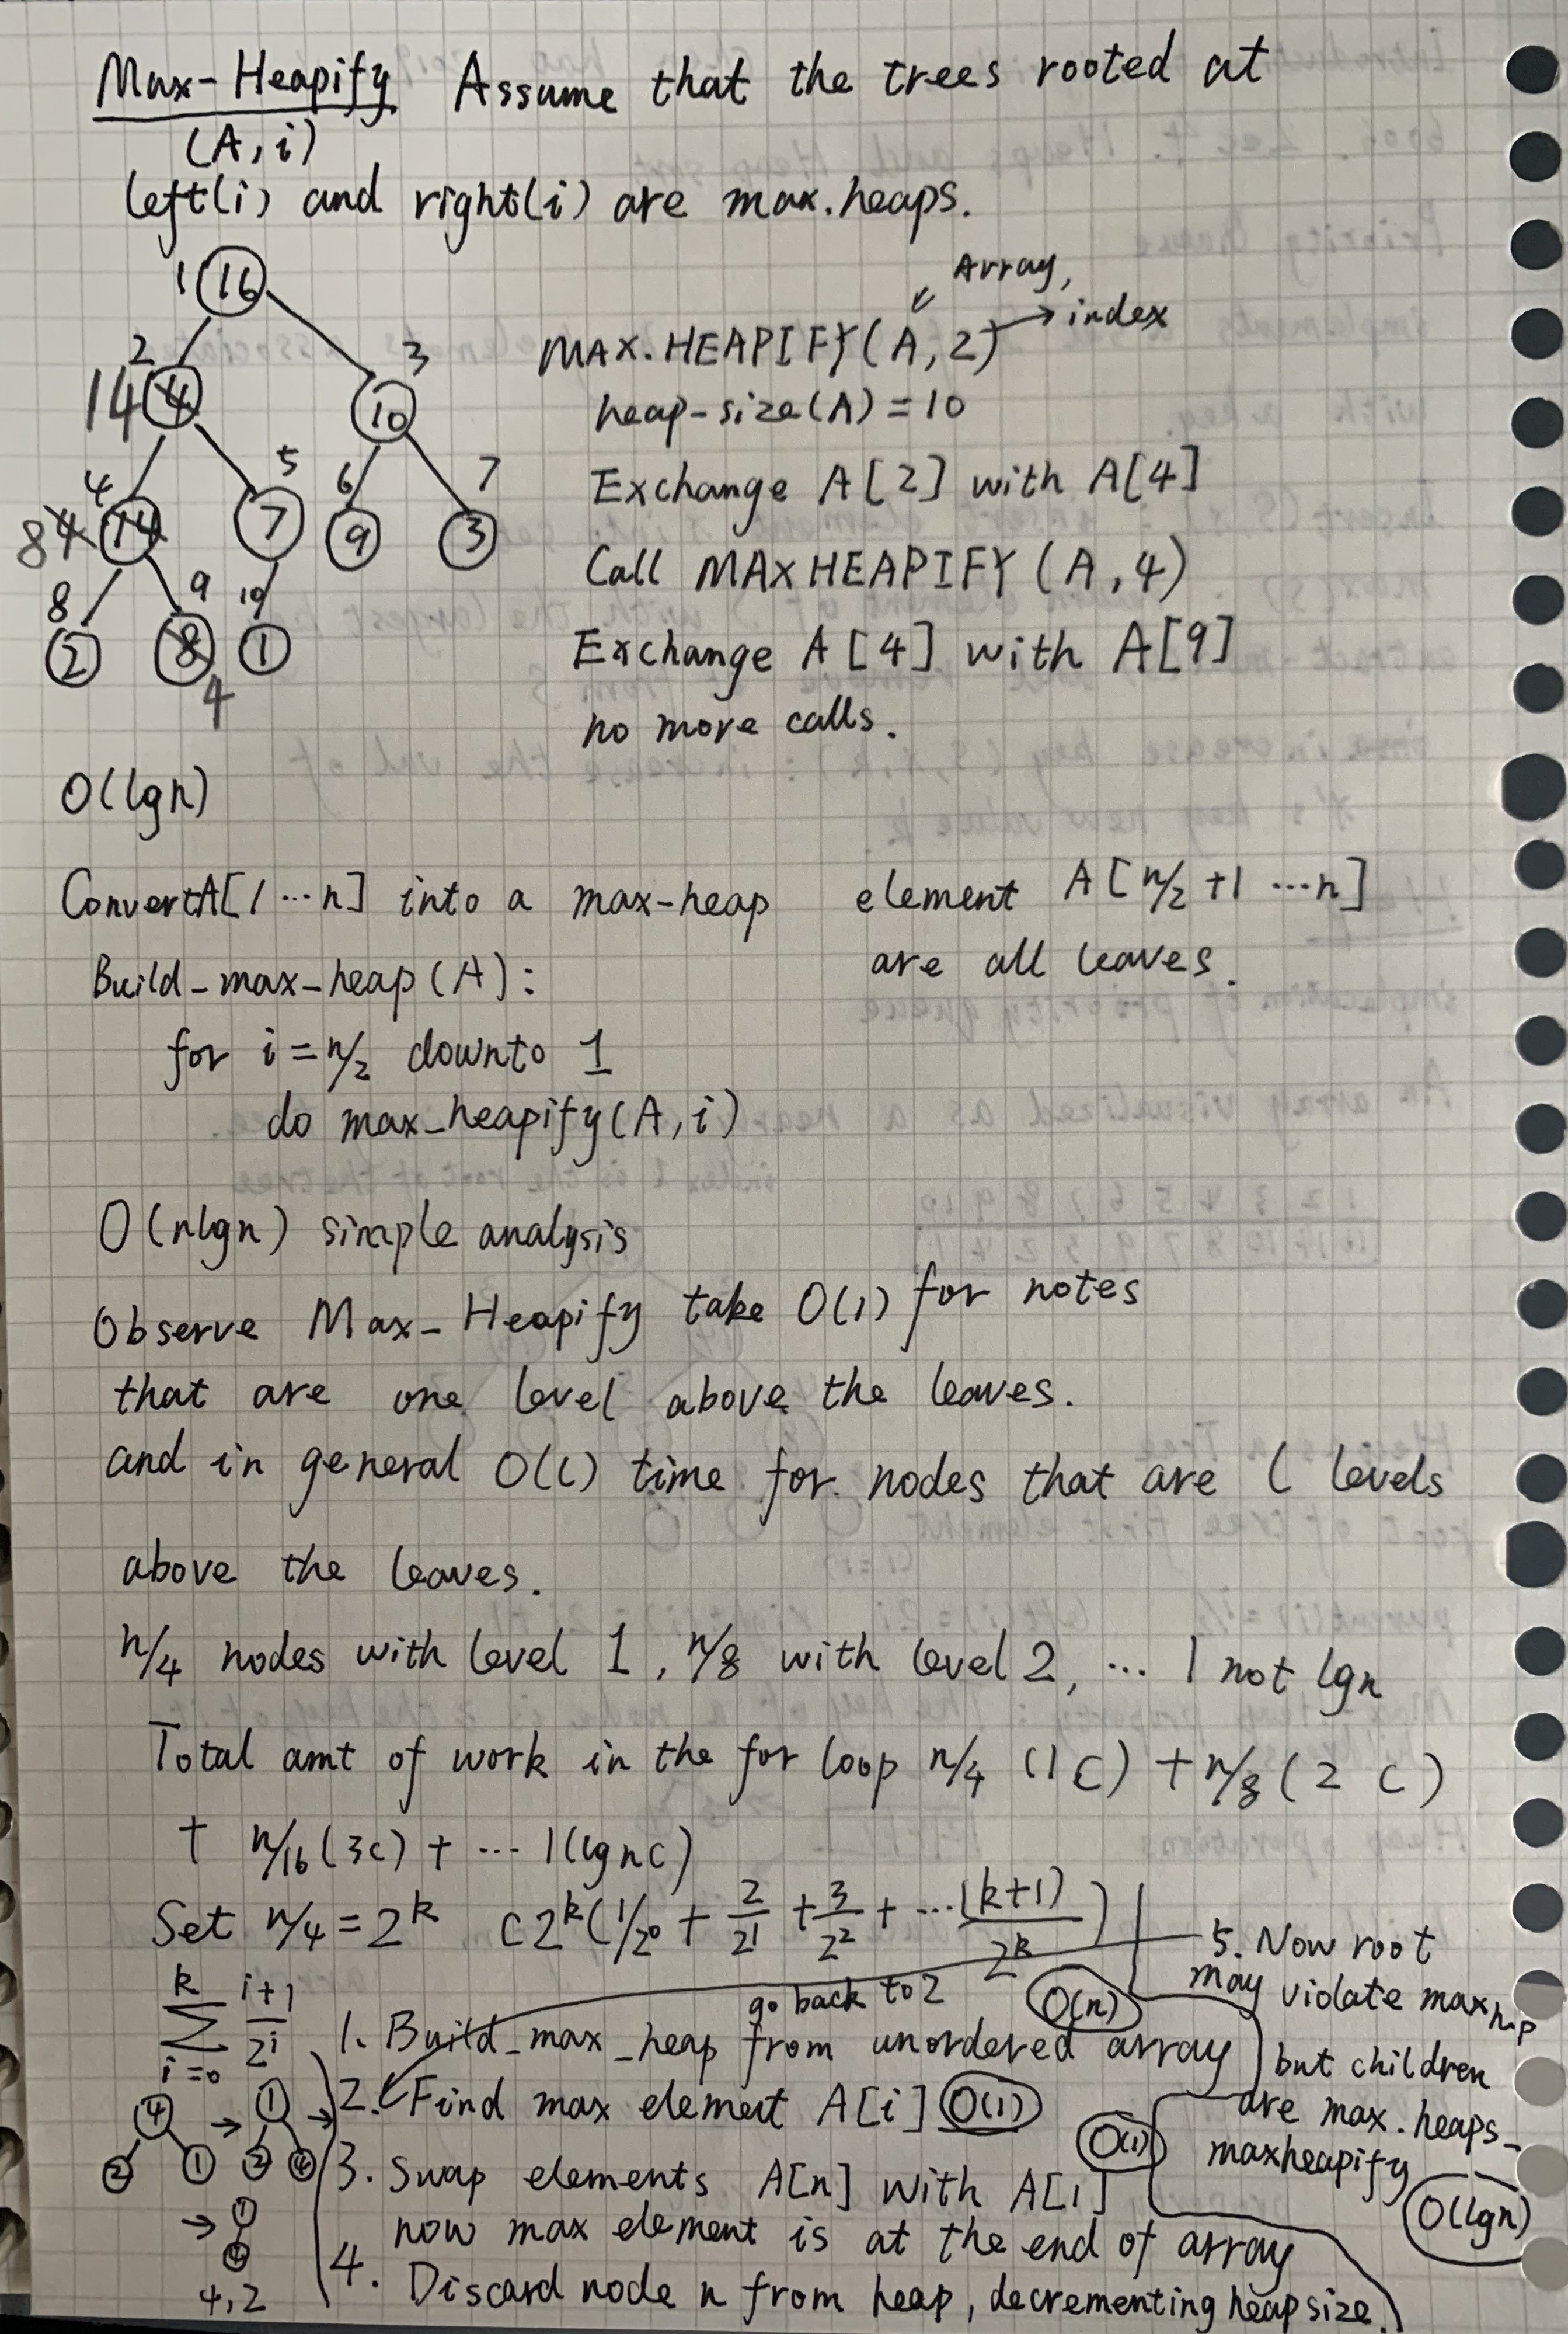 Max-Heapify Assume that the trees rooted at
(A,i)
left(i) and right(i) are max.heaps.
Array,
MAX.HEAPIFY(A,2) → index
heap-size(A)=10
Exchange A[2] with A[4]
Call MAXHEAPIFY(A,4)
Exchange A[4] with A[9]
no more calls.
1 16
2 3
14 4 10
4 5 6 7
8 4 14 7 9 3
8 9 10
2 8 1
4
O(lgn)
Convert A[1...n] into a max-heap
element A[n/2+1...n]
are all leaves.
Build_max_heap(A):
for i=n/2 downto 1
do max_heapify(A,i)
O(nlgn) simple analysis
Observe Max_Heapify take O(1) for notes
that are one level above the leaves.
and in general O(l) time for nodes that are l levels
above the leaves.
n/4 nodes with level 1, n/8 with level 2, ... 1 not lgn
Total amt of work in the for loop n/4 (1c) + n/8 (2c)
+ n/16(3c) + ... 1(lgnc)
Set n/4=2^k c2^k(1/2^0 + 2/2^1 + 3/2^2 + ... (k+1)/2^k)
∑ i=0 k i+1/2^i
go back to 2
1. Build_max_heap from unordered array O(n)
2. Find max element A[i] O(1)
3. Swap elements A[n] with A[1] O(1)
now max element is at the end of array
4. Discard node n from heap, decrementing heapsize.
5. Now root
may violate maxhp
but children
are max.heaps_
maxheapify
O(lgn)
4 → 1 →
2 1 2 4
→ 1
4,2